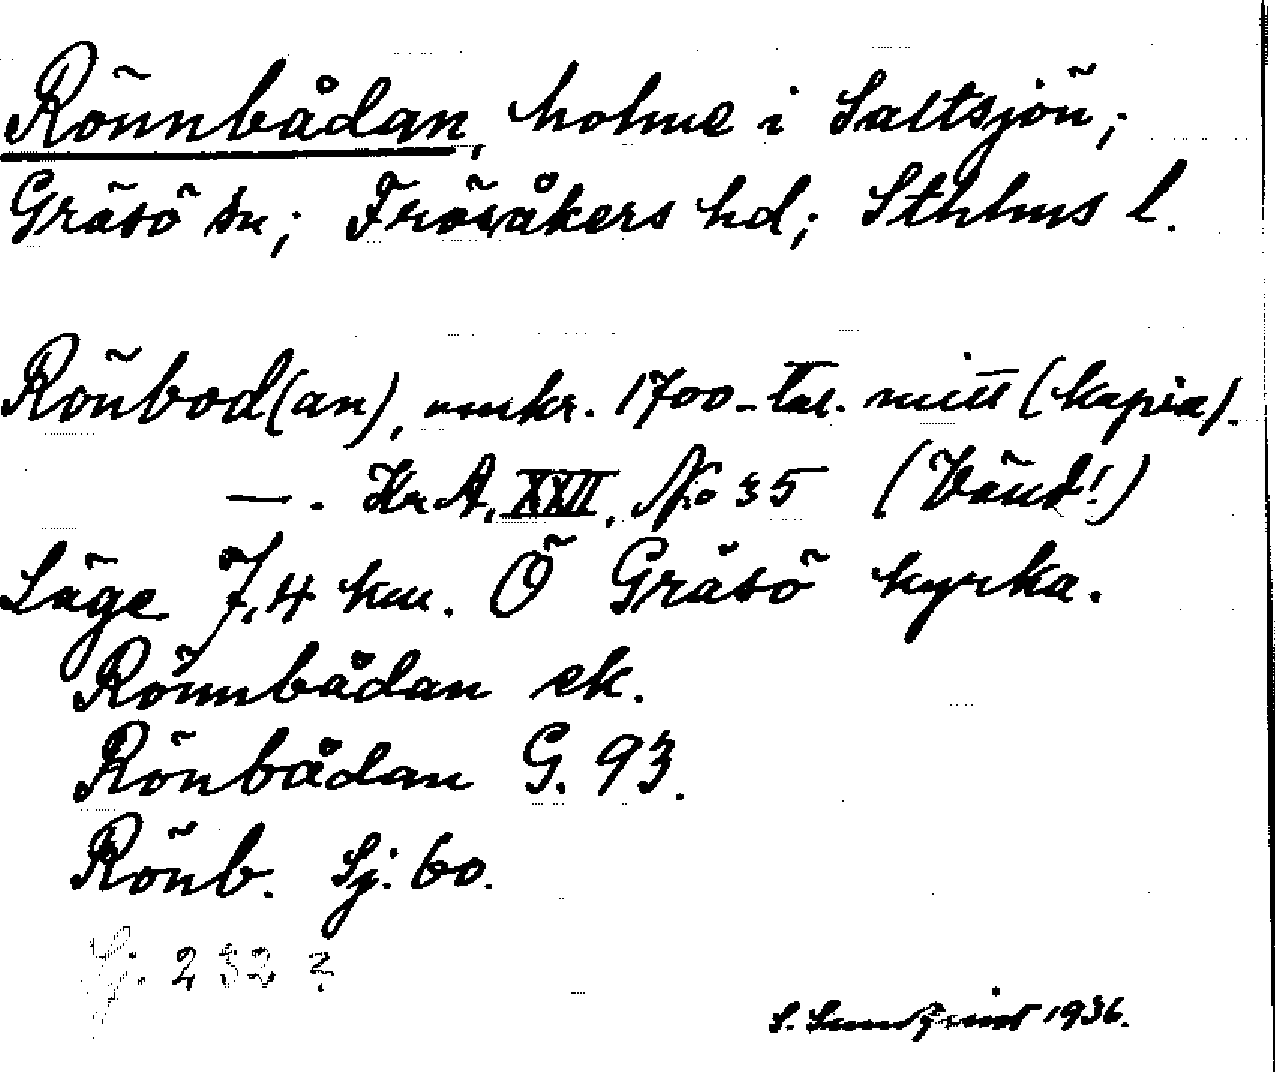 Rönnbådan, holme i Saltsjön;
Gräsö sn; Frösåkers hd; Sthlms l.
Rönbod(an), omkr. 1700-tal. mitt (kopia).
—. Kr. A. XXII, No 35 (Vänd!)
Läge 7,4 km. Ö Gräsö kyrka.
Rönnbådan ek.
Rönbådan G. 93.
Rönb. Sj. 60.
Sj. 232 ?
S. 1936.